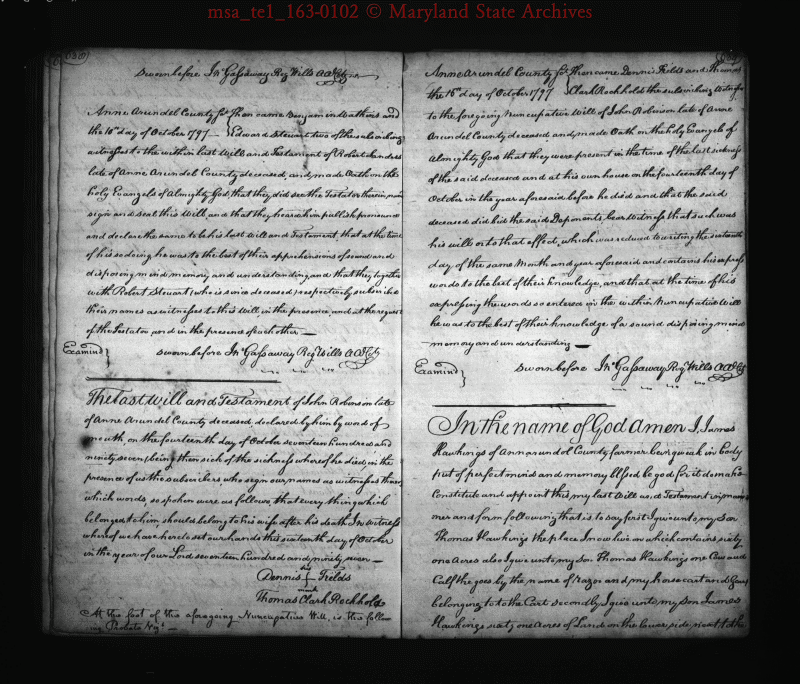 msa_te1_163-0102 © Maryland State Archives
Sworn before Jnº Gassaway Regr Wills AACty
Anne Arundel County Sct Then came Benjamin Watkins and
the 16th day of October 1797 Edward Steuart two of the subscribing
witnesses to the within last Will and Testament of Robert
late of Anne Arundel County deceased, and made Oath on the
holy Evangels of Almighty God that they did see the Testator therein
sign and seal this Will, and that they heard him publish pronounce
and declare the same to be his last will and Testament, that at the time
of his so doing he was to the best of their apprehensions of sound and
disposing mind memory and understanding and that they together
with Robert Steuart (who is since deceased) respectively subscribed
their names as witnesses to this Will in the presence and at the request
of the Testator and in the presence of each other
Examind } Sworn before Jnº Gassaway Regr Wills AACty
The Last Will and Testament of John Robinson late
of Anne Arundel County deceased declared by him by word of
mouth on the fourteenth day of October seventeen hundred and
ninety seven (being then sick of the sickness whereof he died) in the
presence of us the subscribers, who sign our names as witnesses thereto
which words, so spoken were as follows, that every thing which
belonged to him should belong to his wife after his death. In witness
whereof we have hereto set our hands this sixteenth day of October
in the year of our Lord seventeen hundred and ninety seven
Dennis Fields
mark
Thomas Clark Rockhold
At the foot of the aforegoing Nuncupative Will, is the follow
ing Probate Vizt
Anne Arundel County Sct Then came Dennis Fields and Thomas
the 16th day of October 1797 Clark Rockhold the subscribing Witnesses
to the foregoing Nuncupative Will of John Robinson late of Anne
Arundel County deceased and made Oath on the Holy Evangels of
Almighty God that they were present in the time of the last sickness
of the said deceased and at his own house on the fourteenth day of
October in the year aforesaid before he died and that the said
deceased did bid the said Deponents bear Witness that such was
his will or to that effect, which was reduced to writing the sixteenth
day of the same Month and year aforesaid and contains his express
words to the best of their knowledge, and that at the time of his
expressing the words so entered in the within Nuncupative Will
he was to the best of their knowledge of a sound disposing mind
memory and understanding
Examind } Sworn before Jnº Gassaway Regr Wills AACty
In the name of God Amen I, James
Hawkings of annarundol County farmer being weak in body
put of perfect mind and memory blesed be god for it do make
Constitute and appoint this my last Will and Testament in man
ner and form following that is to say first I give unto my Son
Thomas Hawkings the place I now live on which contains sixty
one Acres also I give unto my Son Thomas Hawkings one Cow and
Calf the goes by the name of razor and my horse cart and Gears
belonging to to the Cart secondly I give unto my Son James
Hawkings sixty one Acres of Land on the lower side next to the